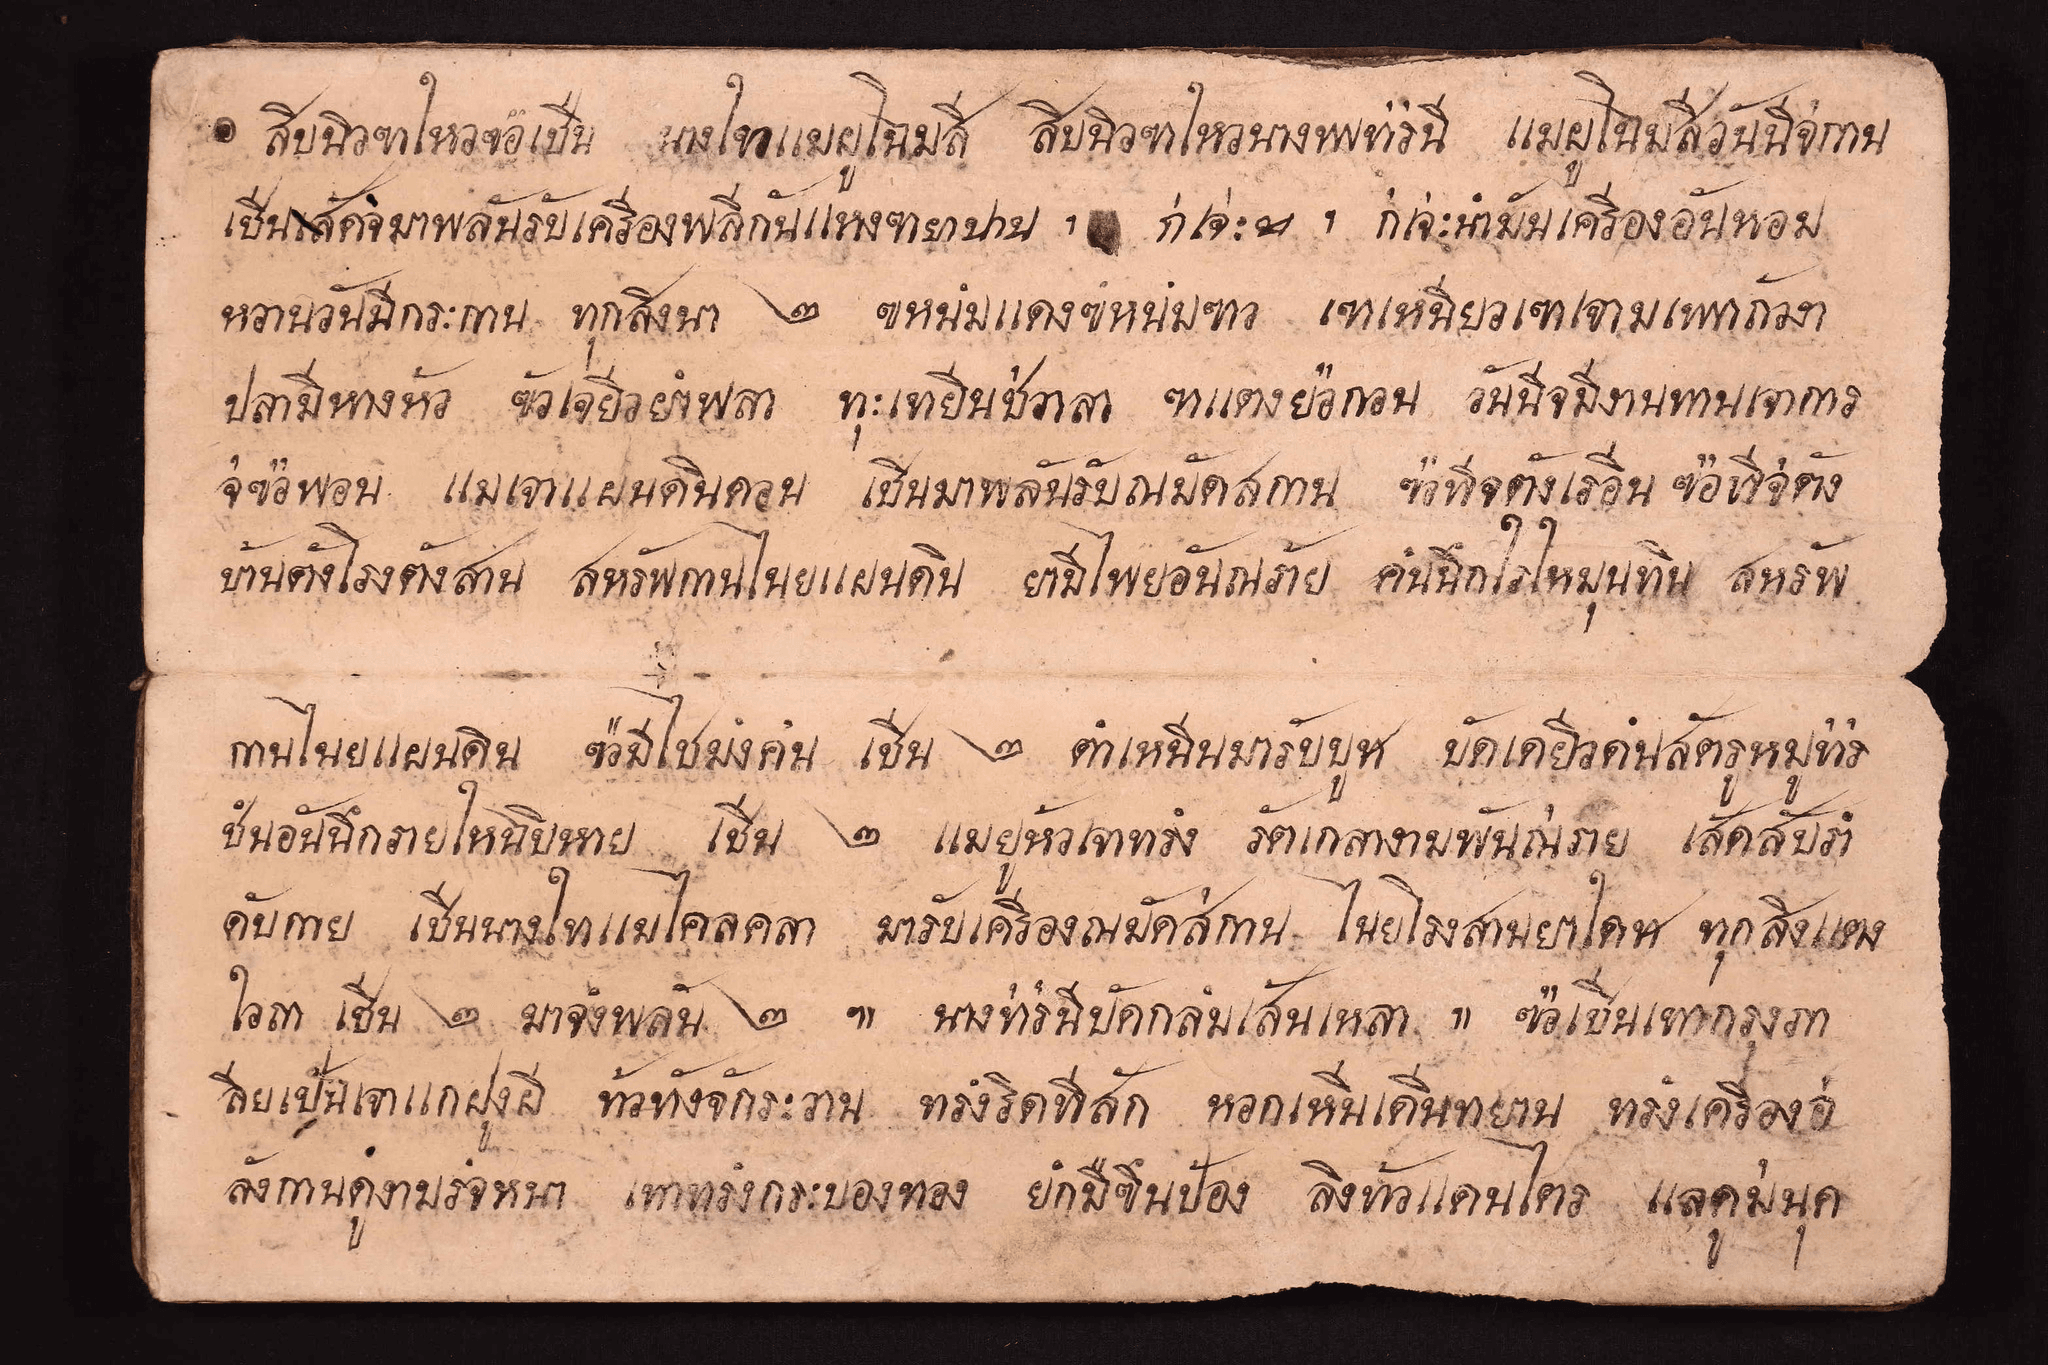 ๏ สิบนิวฃาไหวฃ๋อเชีน นางไทวแมผูโฉมสี สิบนิวฃาไหวนางพท่รนี แมผูโฉมสีวันนีจ่กาน
เชีนเส้ดจํมาพลันรับเครื่องพลีกันแหงฃยาปาน ฯ ก่เจ่ะ๛ ฯ ก่เจ่ะนำมันเครื่องอันหอม
หวานวันมีกระกาน ทุกสิงนา ๒ ฃหน่มแดงฃ่หน่มฃาว เฃาเหนียวเฃาเจามเพากัวงา
ปลามีหางหัว ซัวเจยีวยำพลา ทุะเทยีนช่วาลา ฃาแตงย่อกวน วันนีจมีงานทานเจาการ
จ่ฃ๋อพอน แมเจาแผนดินดอน เชีนมาพลันรับณมัดสการ ฃ๋วทีจตังเรือน ฃ๋อทีจ่ตัง
บ้านตังโรงตังสาน สหรัพการไนยแผนดิน ยามีไพยอันณร้าย คํนึกไรไหมุนทิน สหรัพ
การไนยแผนดิน ฃ๋วมีไชม่งคํน เชีน ๒ ตำเหนีนมารับบูช บัดเดยีวดํนสัตรูหมูท่ร
ชํนอันนึกรายไหนิบหาย เชีน ๒ แมยูหัวเจาทรํง รัตเกลางามพันณ่ราย เส้ดสับรํา
ดับกาย เชีนนางไทแมไคลคลา มารับเครื่องณมัดส่การ ไนยโรงสานยาไดช ทุกสิงแตง
ไวถา เชีน ๒ มาจํงพลัน ๒ ฯ นางท่ร่นีบัดกลํมเส้นเหลา ฯ ฃ๋วเชีนเทากรุงรา
ลียเป็นเจาแกฝูงผี ท้วทังจักระวาน ทรํงริดทีสัก หอกเหีนเดีนทยาน ทรํงเครื่องอ่
ลังกานดูงามร่จหนา เทาทรํงกระบองทอง ยํกมืซึนป้อง ลิงท้วแดนไตร แลดูม่นุค